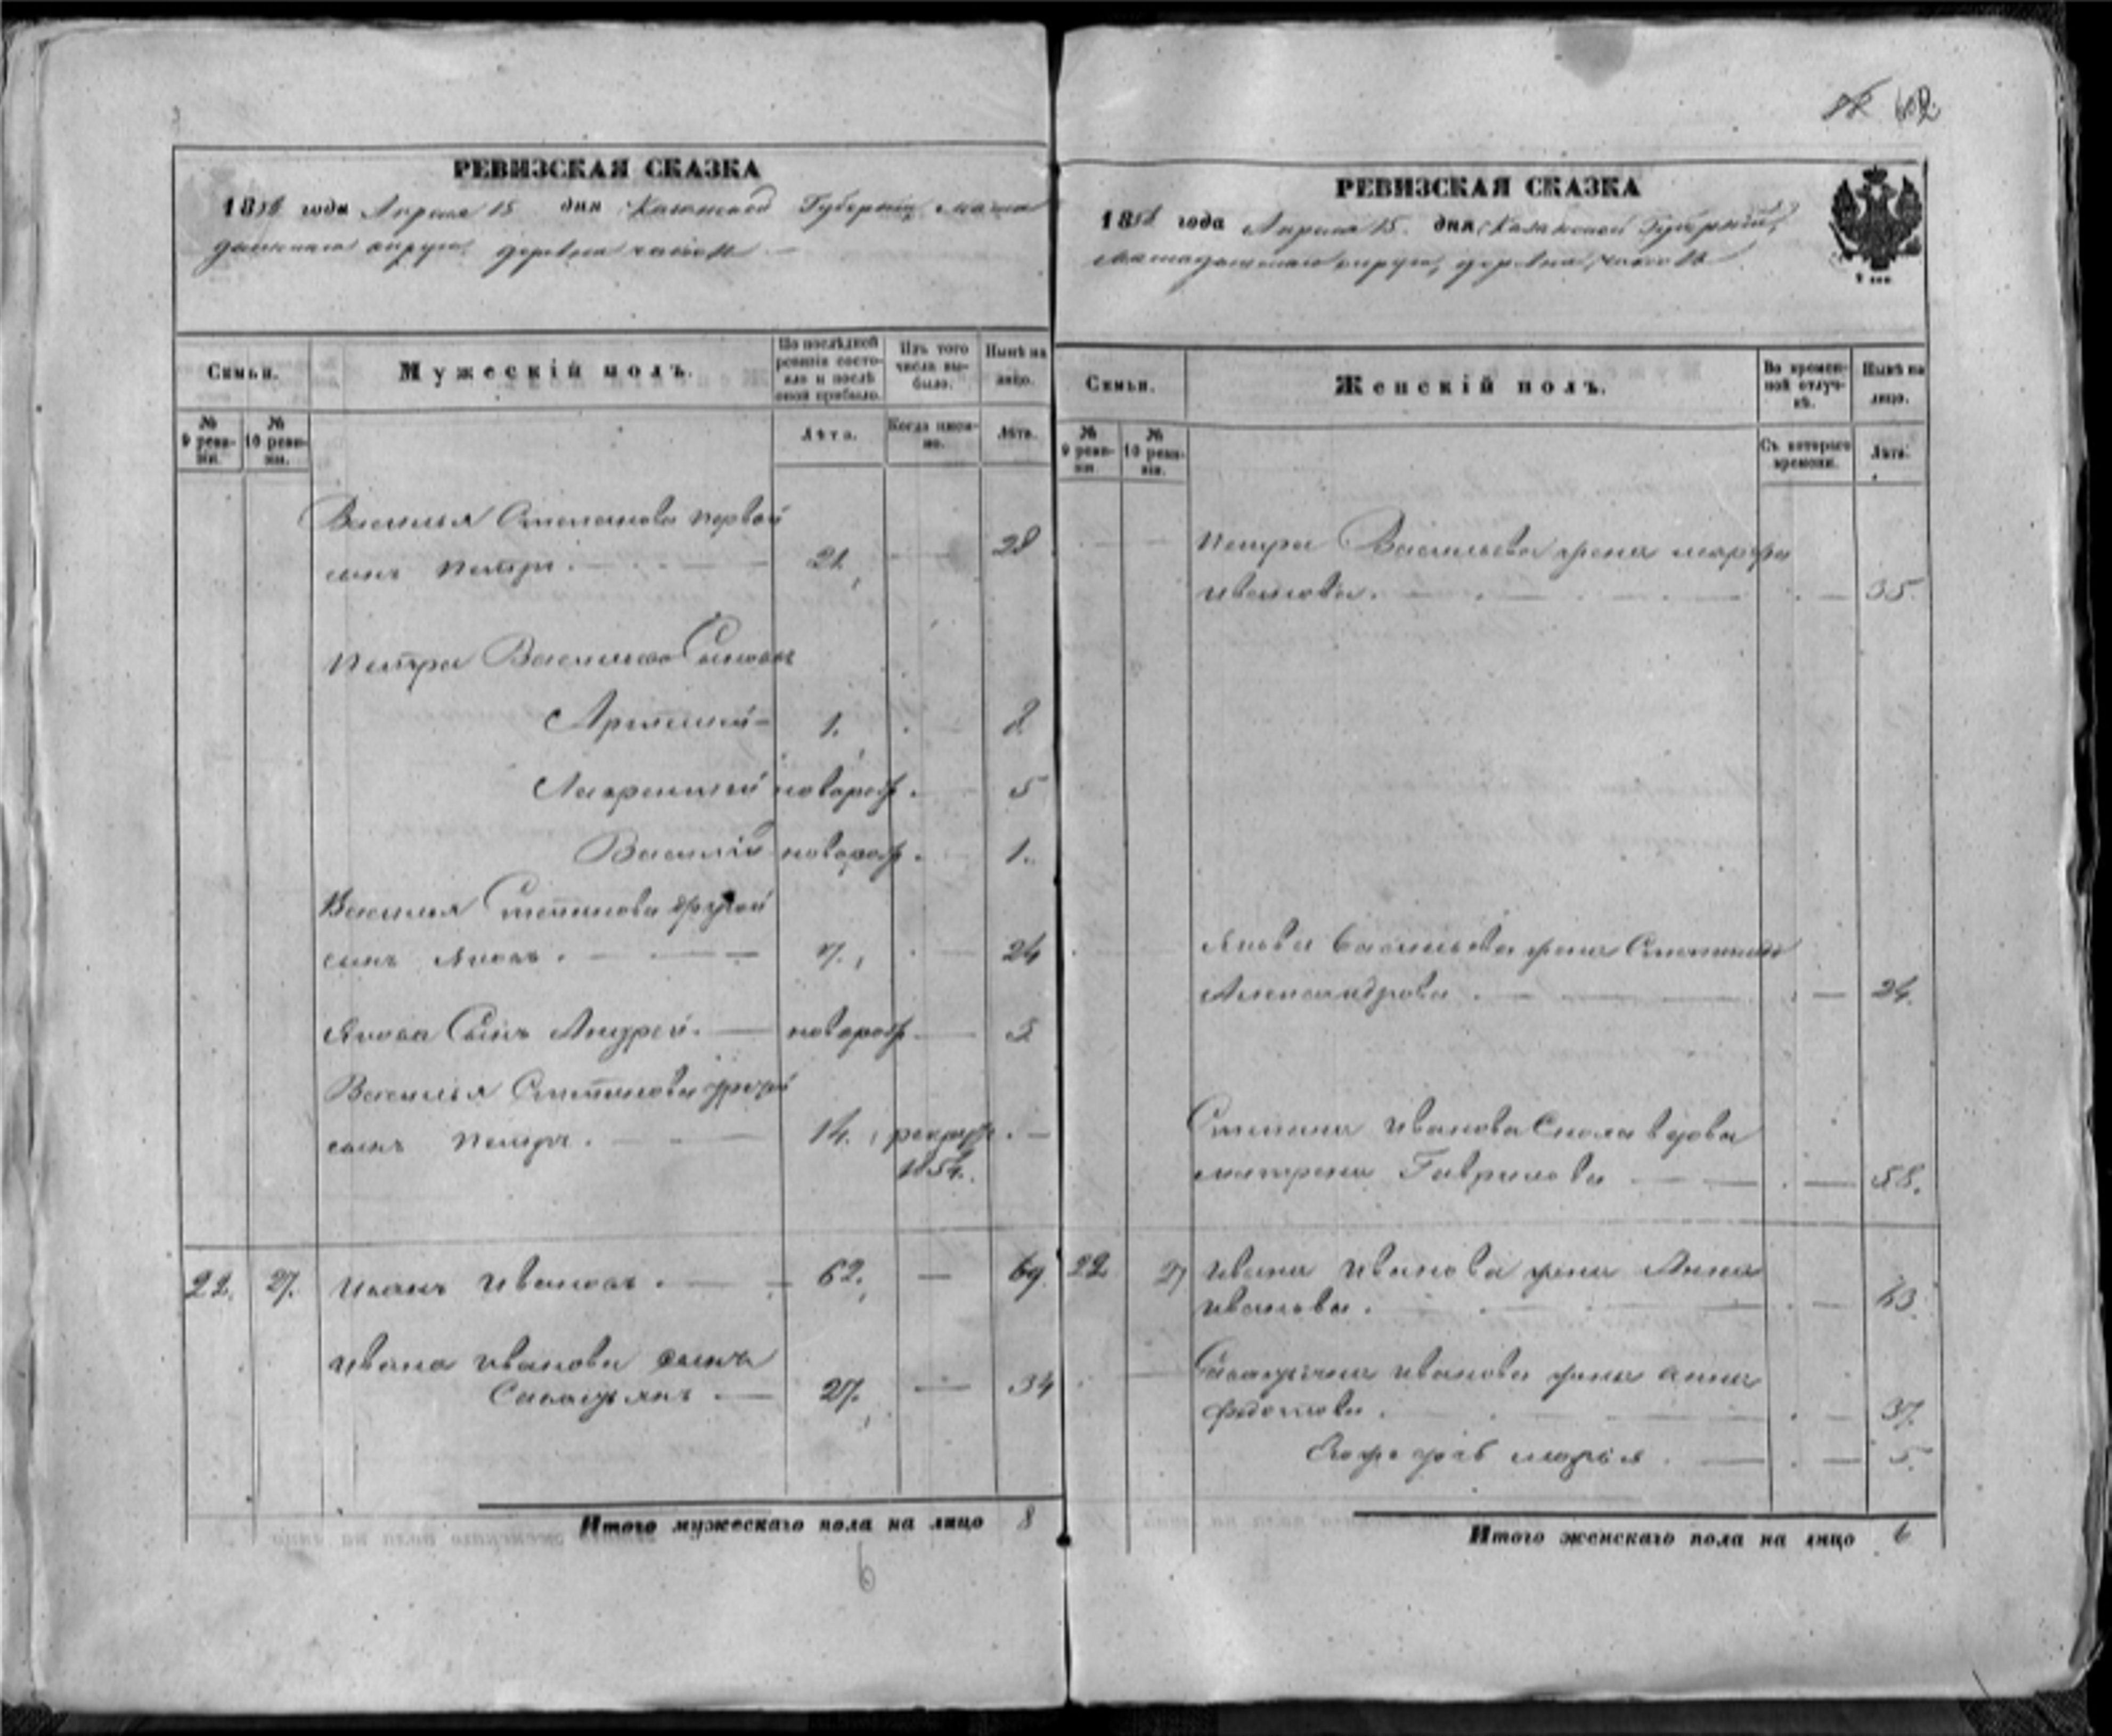 62
РЕВИЗСКАЯ СКАЗКА
1858 года Апреля 15 дня Казанской Губернии Мама
дышскаго округа, деревни
Семьи.
Мужескій полъ.
По послѣдней ревизіи состояло и послѣ оной прибыло.
Изъ того числа выбыло.
Нынѣ на лицо.
№ 9 ревизіи.
№ 10 ревизіи.
Лѣта.
Когда именно.
Лѣта.
Василья Степанова первой
сынъ Петръ. 21. 28
Петра Васильева Сыновья
Артемий 1. 8
Лаврентий новорож. 5
Василій новорож. 1.
Василья Степанова другой
сынъ Яковъ. 17. 24
Якова Сынъ Андрей. новорож 3
Василья Степанова третій
сынъ Петръ. 14. рекрут.
1854.
22. 27. Иванъ Ивановъ. 62. 69.
Ивана Иванова сынъ
Савастьянъ. 27. 34
Итого мужескаго пола на лицо 8
6
РЕВИЗСКАЯ СКАЗКА
1858 года Апреля 15. дня Казанской Губерніи,
Мамадышскаго округа, деревни
Семьи.
Женскій полъ.
Во временной отлучкѣ.
Нынѣ на лицо.
№ 9 ревизіи.
№ 10 ревизіи.
Съ котораго времени.
Лѣта.
Петра Васильева жена Марфа
Иванова. 35.
Якова Васильева жена Степанида
Александрова. 24.
Степана Иванова вдова
Матрена Гаврилова 58.
22 27 Ивана Иванова жена Анна
Иванова. 63.
Савастьяна Иванова жена Анна
Федотова. 37.
Его дочь Марья. 5.
Итого женскаго пола на лицо 6